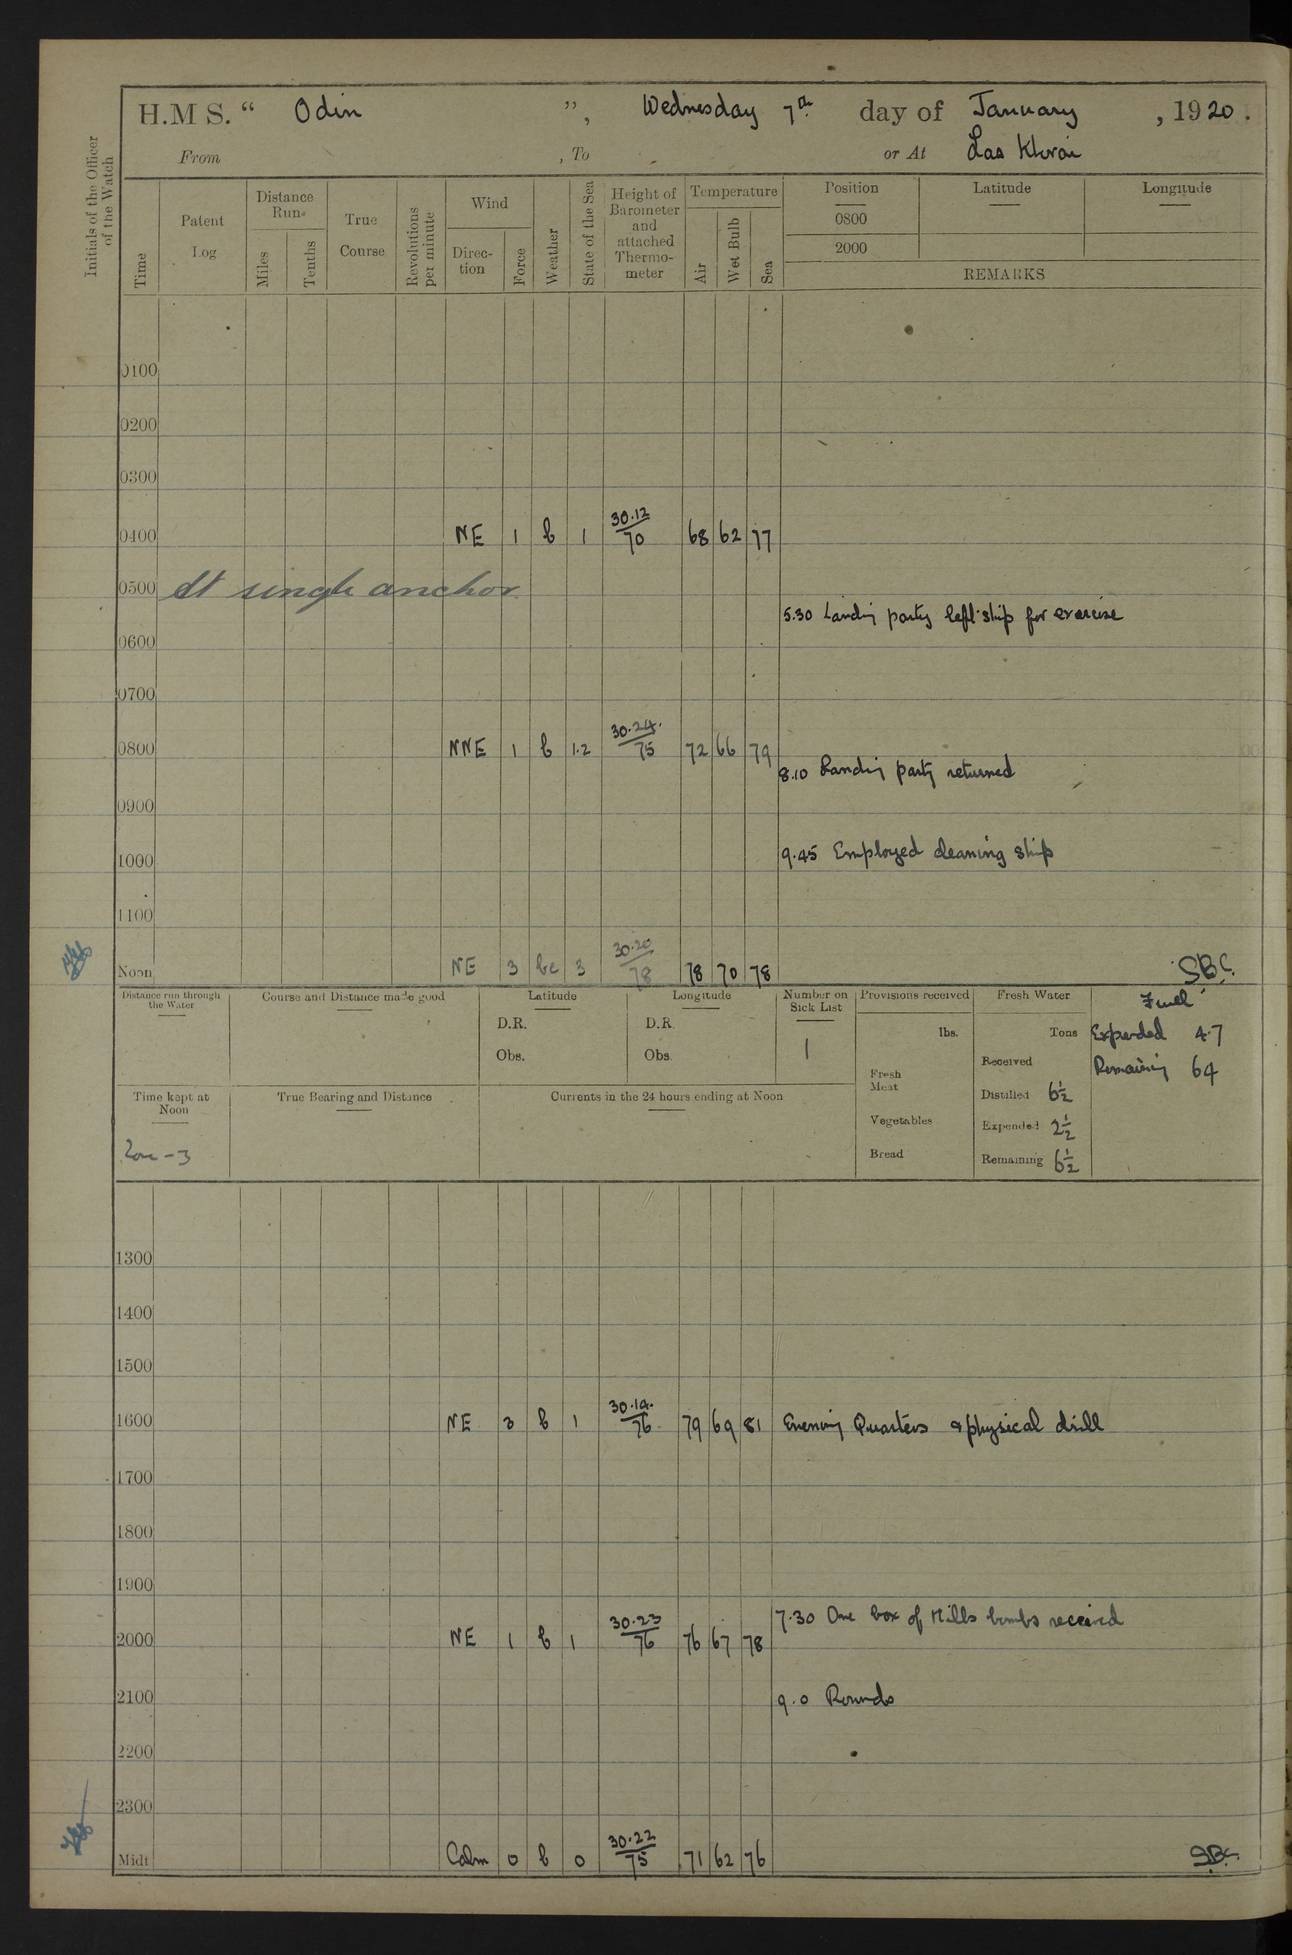 H.M S. “ Odin ”, Wednesday 7th day of January , 1920.
From , To or At Las Khorai
Initials of the Officer of the Watch
Time
Patent Log
Distance Run.
Miles
Tenths
True Course
Revolutions per minute
Wind
Direc-tion
Force
Weather
State of the Sea
Height of Barometer and attached Thermo-meter
Temperature
Air
Wet Bulb
Sea
Position Latitude Longitude
0800
2000
REMARKS
0100
0200
0300
0400 NE 1 b 1 30.12/70 68 62 77
0500 At single anchor
5.30 Landing party left ship for exercise
0600
0700
0800 NNE 1 b 1.2 30.24./75 72 66 79
8.10 Landing party returned
0900
9.45 Employed cleaning ship
1000
1100
Noon NE 3 bc 3 30.20/78 78 70 78 SBC.
Distance run through the Water
Course and Distance made good
Latitude
D.R.
Obs.
Longitude
D.R.
Obs.
Number on Sick List
1
Provisions received
lbs.
Fresh Meat
Vegetables
Bread
Fresh Water
Tons
Received
Distilled 6½
Expended 2½
Remaining 6½
Fuel
Expended 4.7
Remaining 64
Time kept at Noon
Zone -3
True Bearing and Distance
Currents in the 24 hours ending at Noon
1300
1400
1500
1600 NE 3 b 1 30.14./76 79 69 81 Evening Quarters & physical drill
1700
1800
1900
7.30 One box of Mills bombs received
2000 NE 1 b 1 30.23/76 76 67 78
2100 9.0 Rounds
2200
2300
Midt Calm 0 b 0 30.22/75 71 62 76 SBC.